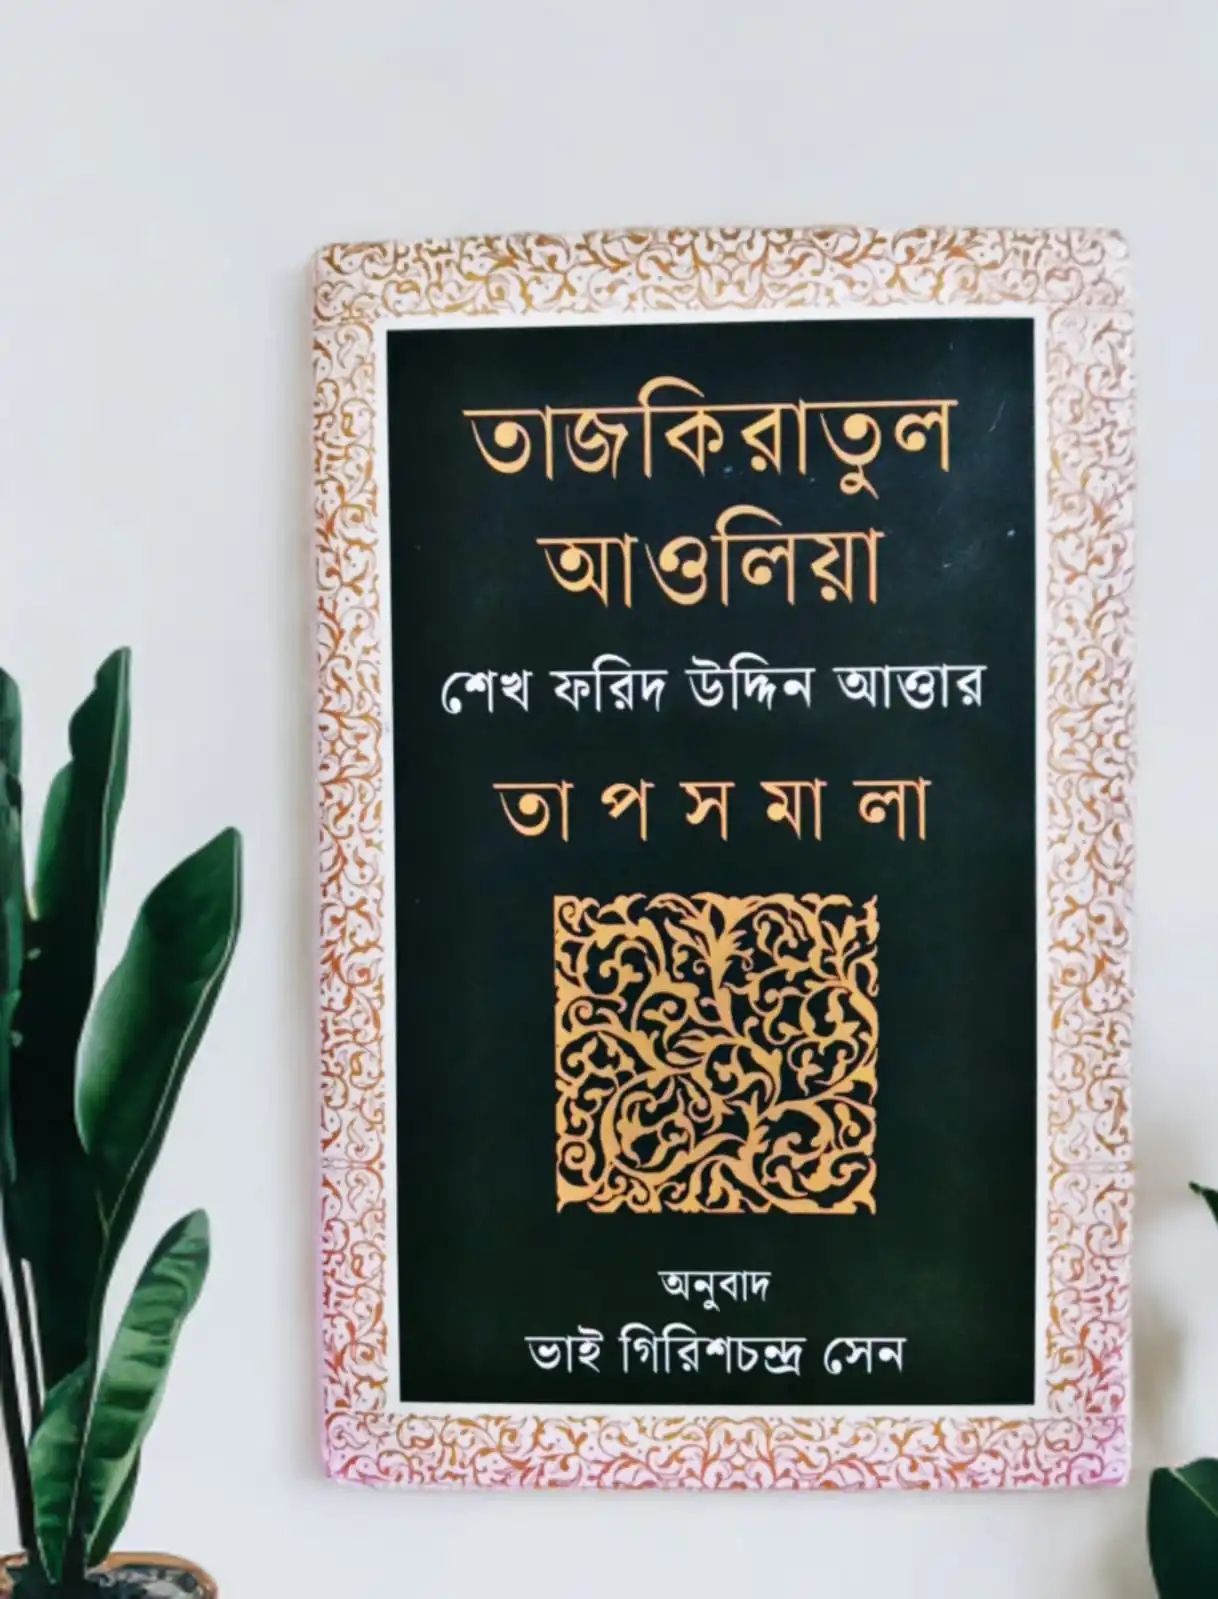 তাজকিরাতুল
আওলিয়া
শেখ ফরিদ উদ্দিন আত্তার
তা প স মা লা
অনুবাদ
ভাই গিরিশচন্দ্র সেন